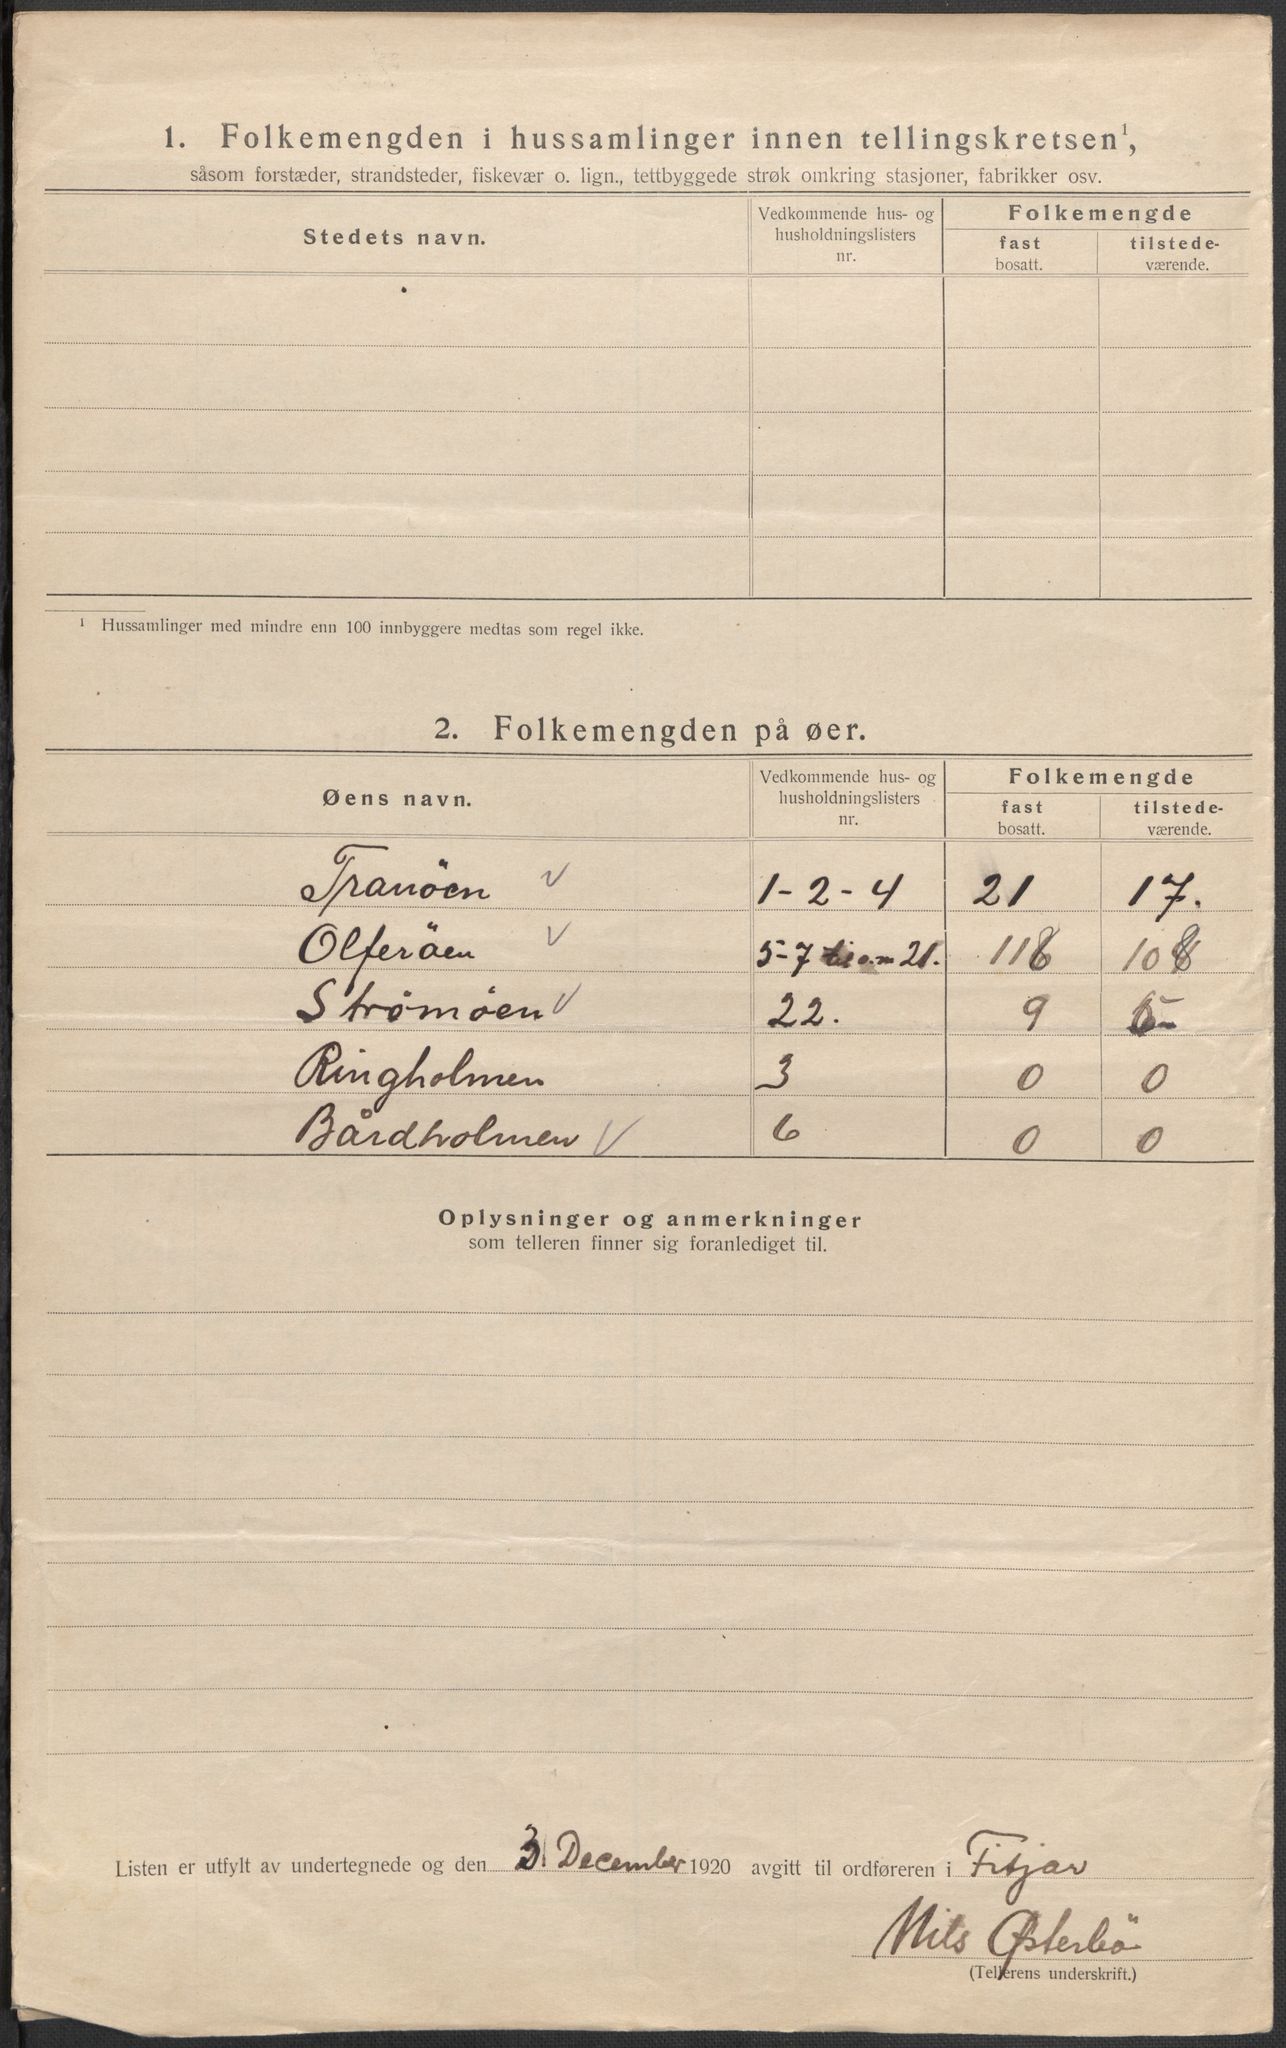 1. Folkemengden i hussamlinger innen tellingskretsen¹,
såsom forstæder, strandsteder, fiskevær o. lign., tettbyggede strøk omkring stasjoner, fabrikker osv.
Stedets navn.
Vedkommende hus- og husholdningslisters nr.
Folkemengde
fast bosatt.
tilstede-værende.
¹ Hussamlinger med mindre enn 100 innbyggere medtas som regel ikke.
2. Folkemengden på øer.
Øens navn.
Vedkommende hus- og husholdningslisters nr.
Folkemengde
fast bosatt.
tilstede-værende.
Tranöen v 1-2-4 21 17.
Olferöen v 5-7 til o.m 21. 118 108
Strömöen v 22. 9 5
Ringholmen 3 0 0
Bårdholmen v 6 0 0
Oplysninger og anmerkninger
som telleren finner sig foranlediget til.
Listen er utfylt av undertegnede og den December 1920 avgitt til ordføreren i Fitjar
Nils Østerbö
(Tellerens underskrift.)